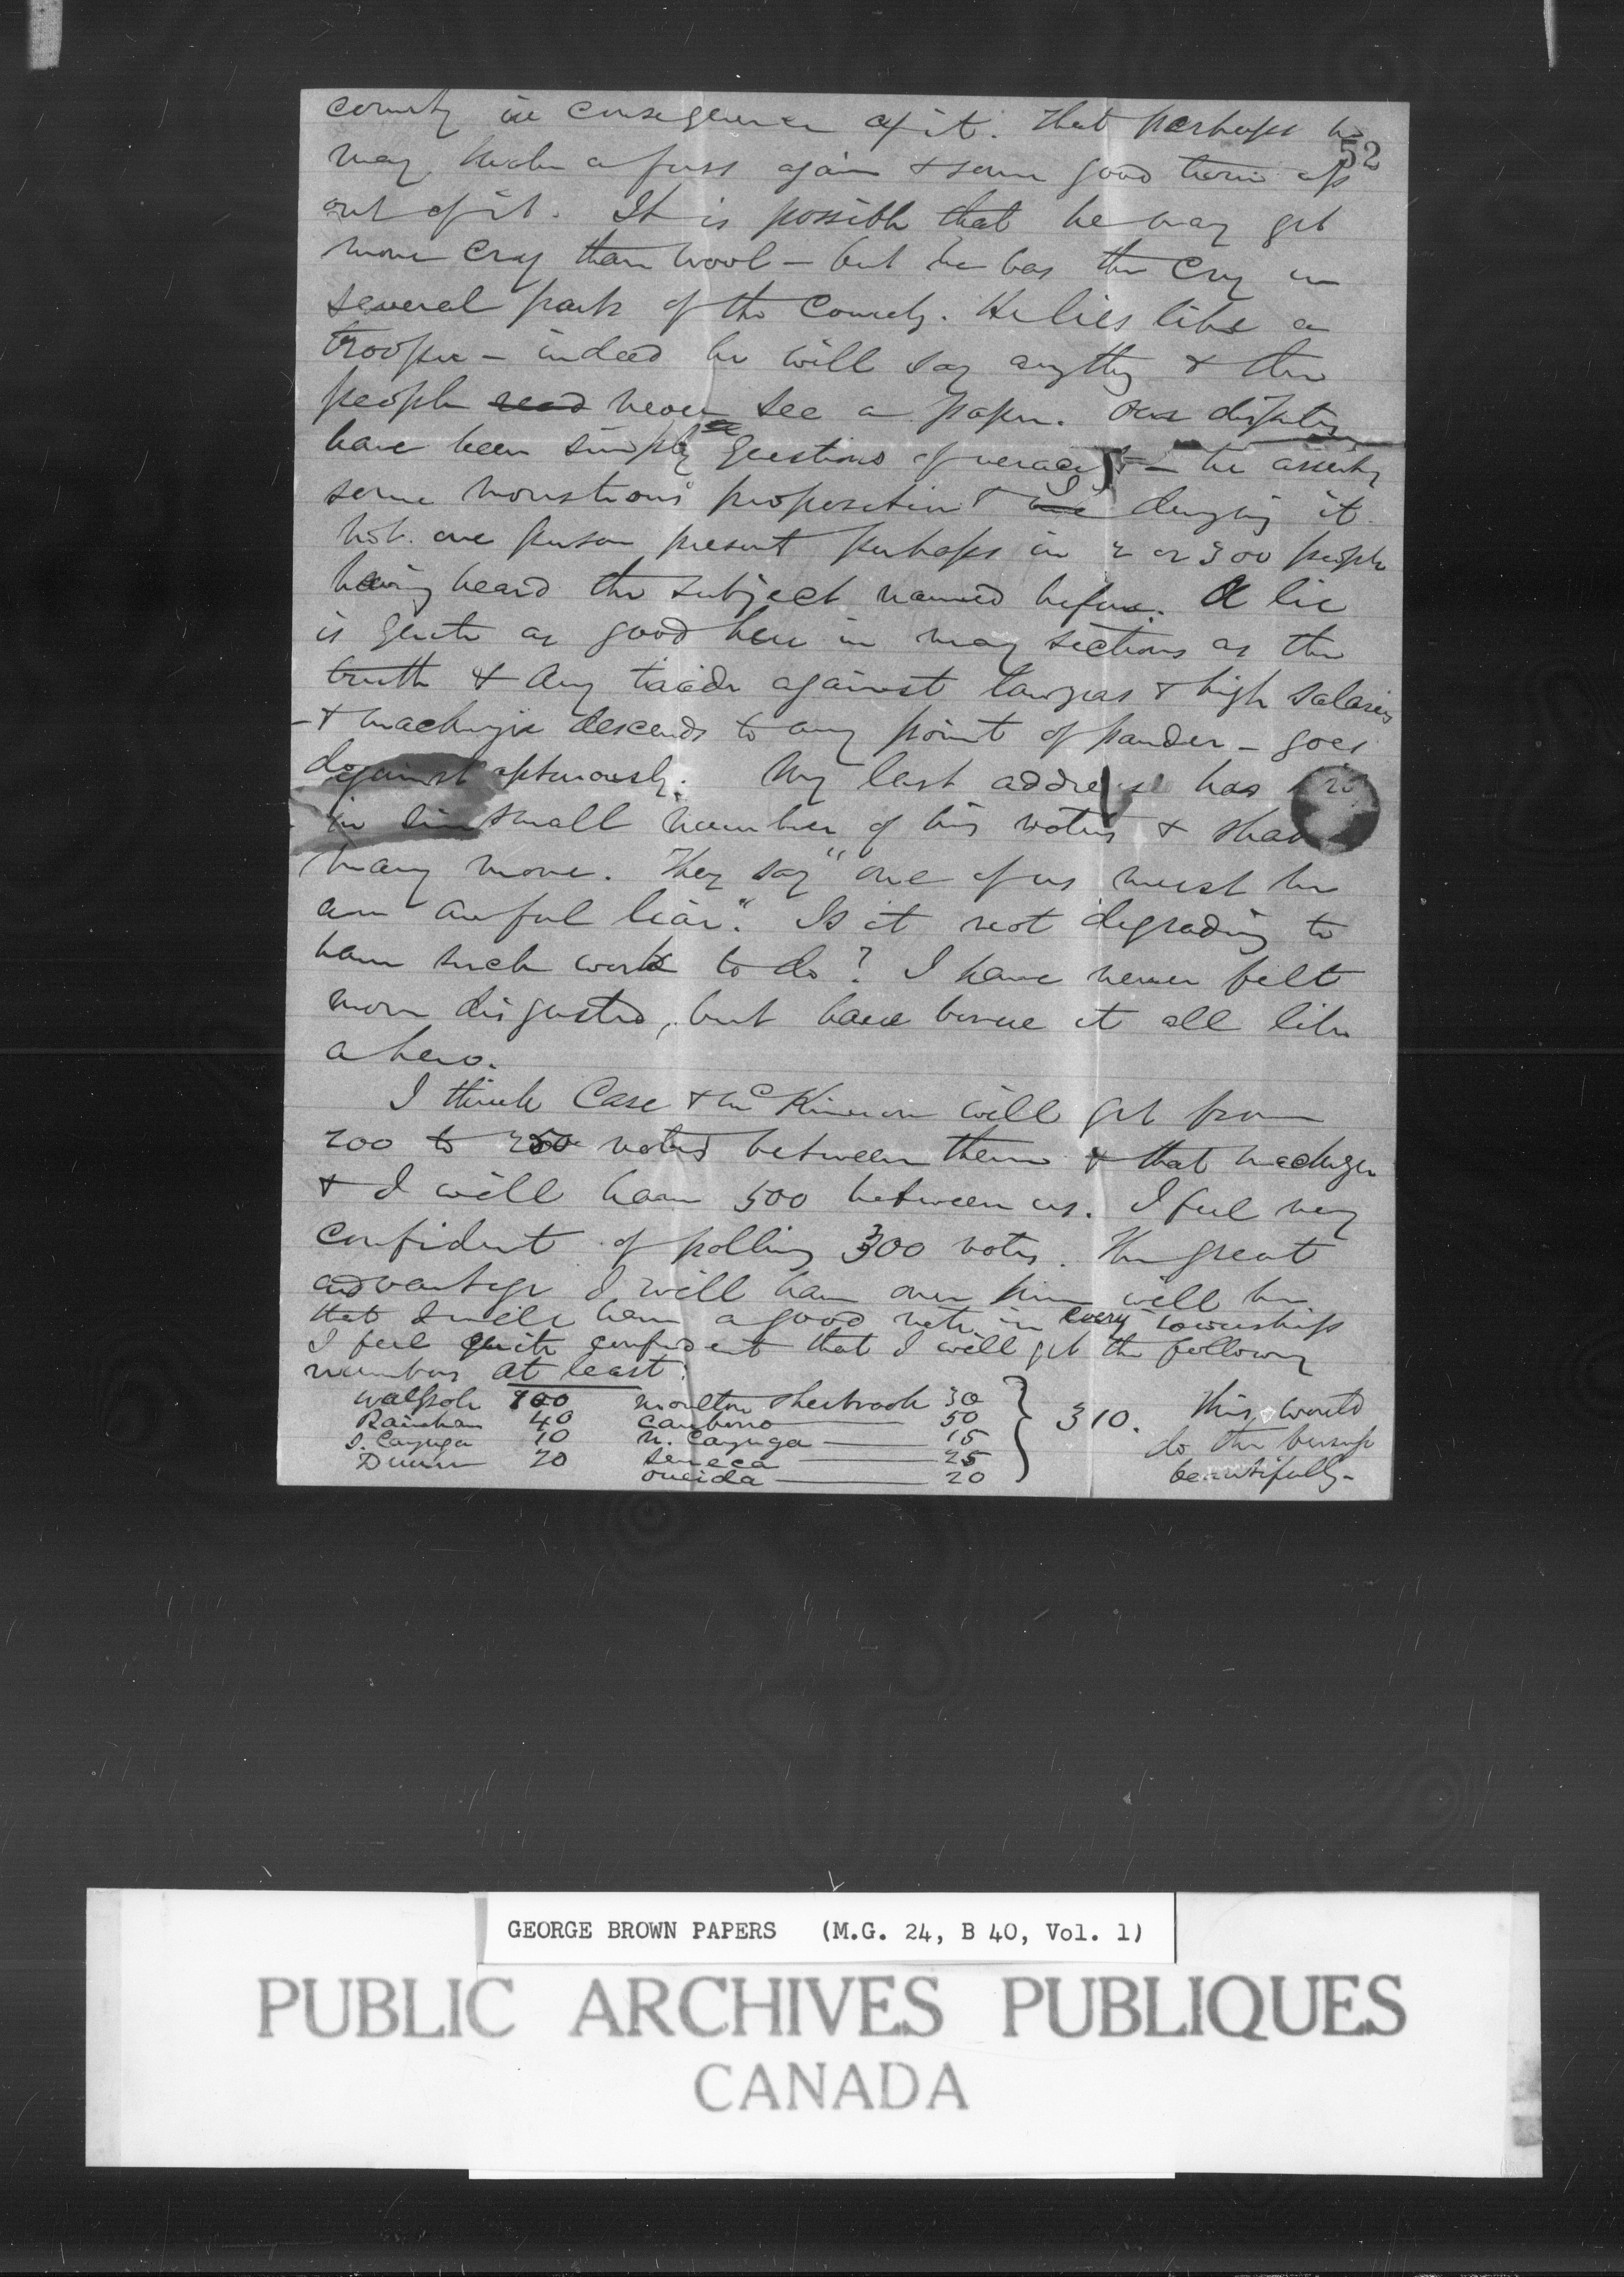 county in consequence of it. That perhaps he
52
may make a fuss again & some good turn up
out of it. It is possible that he may get
more cry than wool – but he has the cry in
several parts of the County. He lies like a
trooper – indeed he will say anything & the
people read never see a paper. Our disputes
have been simply questions of veracity – he asserting
some monstrous proposition & me denying it.
not one person present perhaps in 2 or 300 people
having heard the subject named before. A lie
is quite as good here in many sections as the
truth & any tirade against lawyers & high salaries
– & Mackenzie descends to any point of pander – goes
down rapturously. My last address has
in small number of his voters & shall
many more. They say "one of us must be
an awful liar". Is it not degrading to
have such work to do? I have never felt
more disgusted, but have borne it all like
a hero.
I think Case & McKinnon will get from
200 to 250 votes between them & that Mackenzie
& I will have 500 between us. I feel very
confident of polling 300 votes. The great
advantage I will have over him will be
that I will have a good vote in every township
I feel quite confident that I will get the following
numbers at least:
Walpole 100 Moulton Sherbrook 30
Rainham 40 Canboro 50
S. Cayuga 10 N. Cayuga 15
Dunn 20 Seneca 25
Oneida 20
310. This would
do the business
beautifully –
GEORGE BROWN PAPERS (M.G. 24, B 40, Vol. 1)
PUBLIC ARCHIVES PUBLIQUES
CANADA